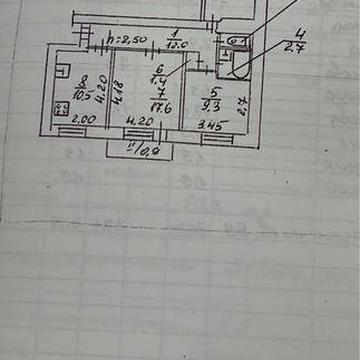 h=2,50
1
12.0
4
2.7
6
1.4
8
10.5
4.20
4.18
7
17.6
5
9.3
2,7
2,00
4.20
3.45
11/0,9